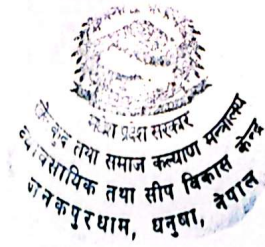 प्रदेश सरकार
तथा समाज कल्याण मन्त्रालय
व्यावसायिक तथा सीप विकास केन्द्र
जनकपुरधाम, धनुषा, नेपाल